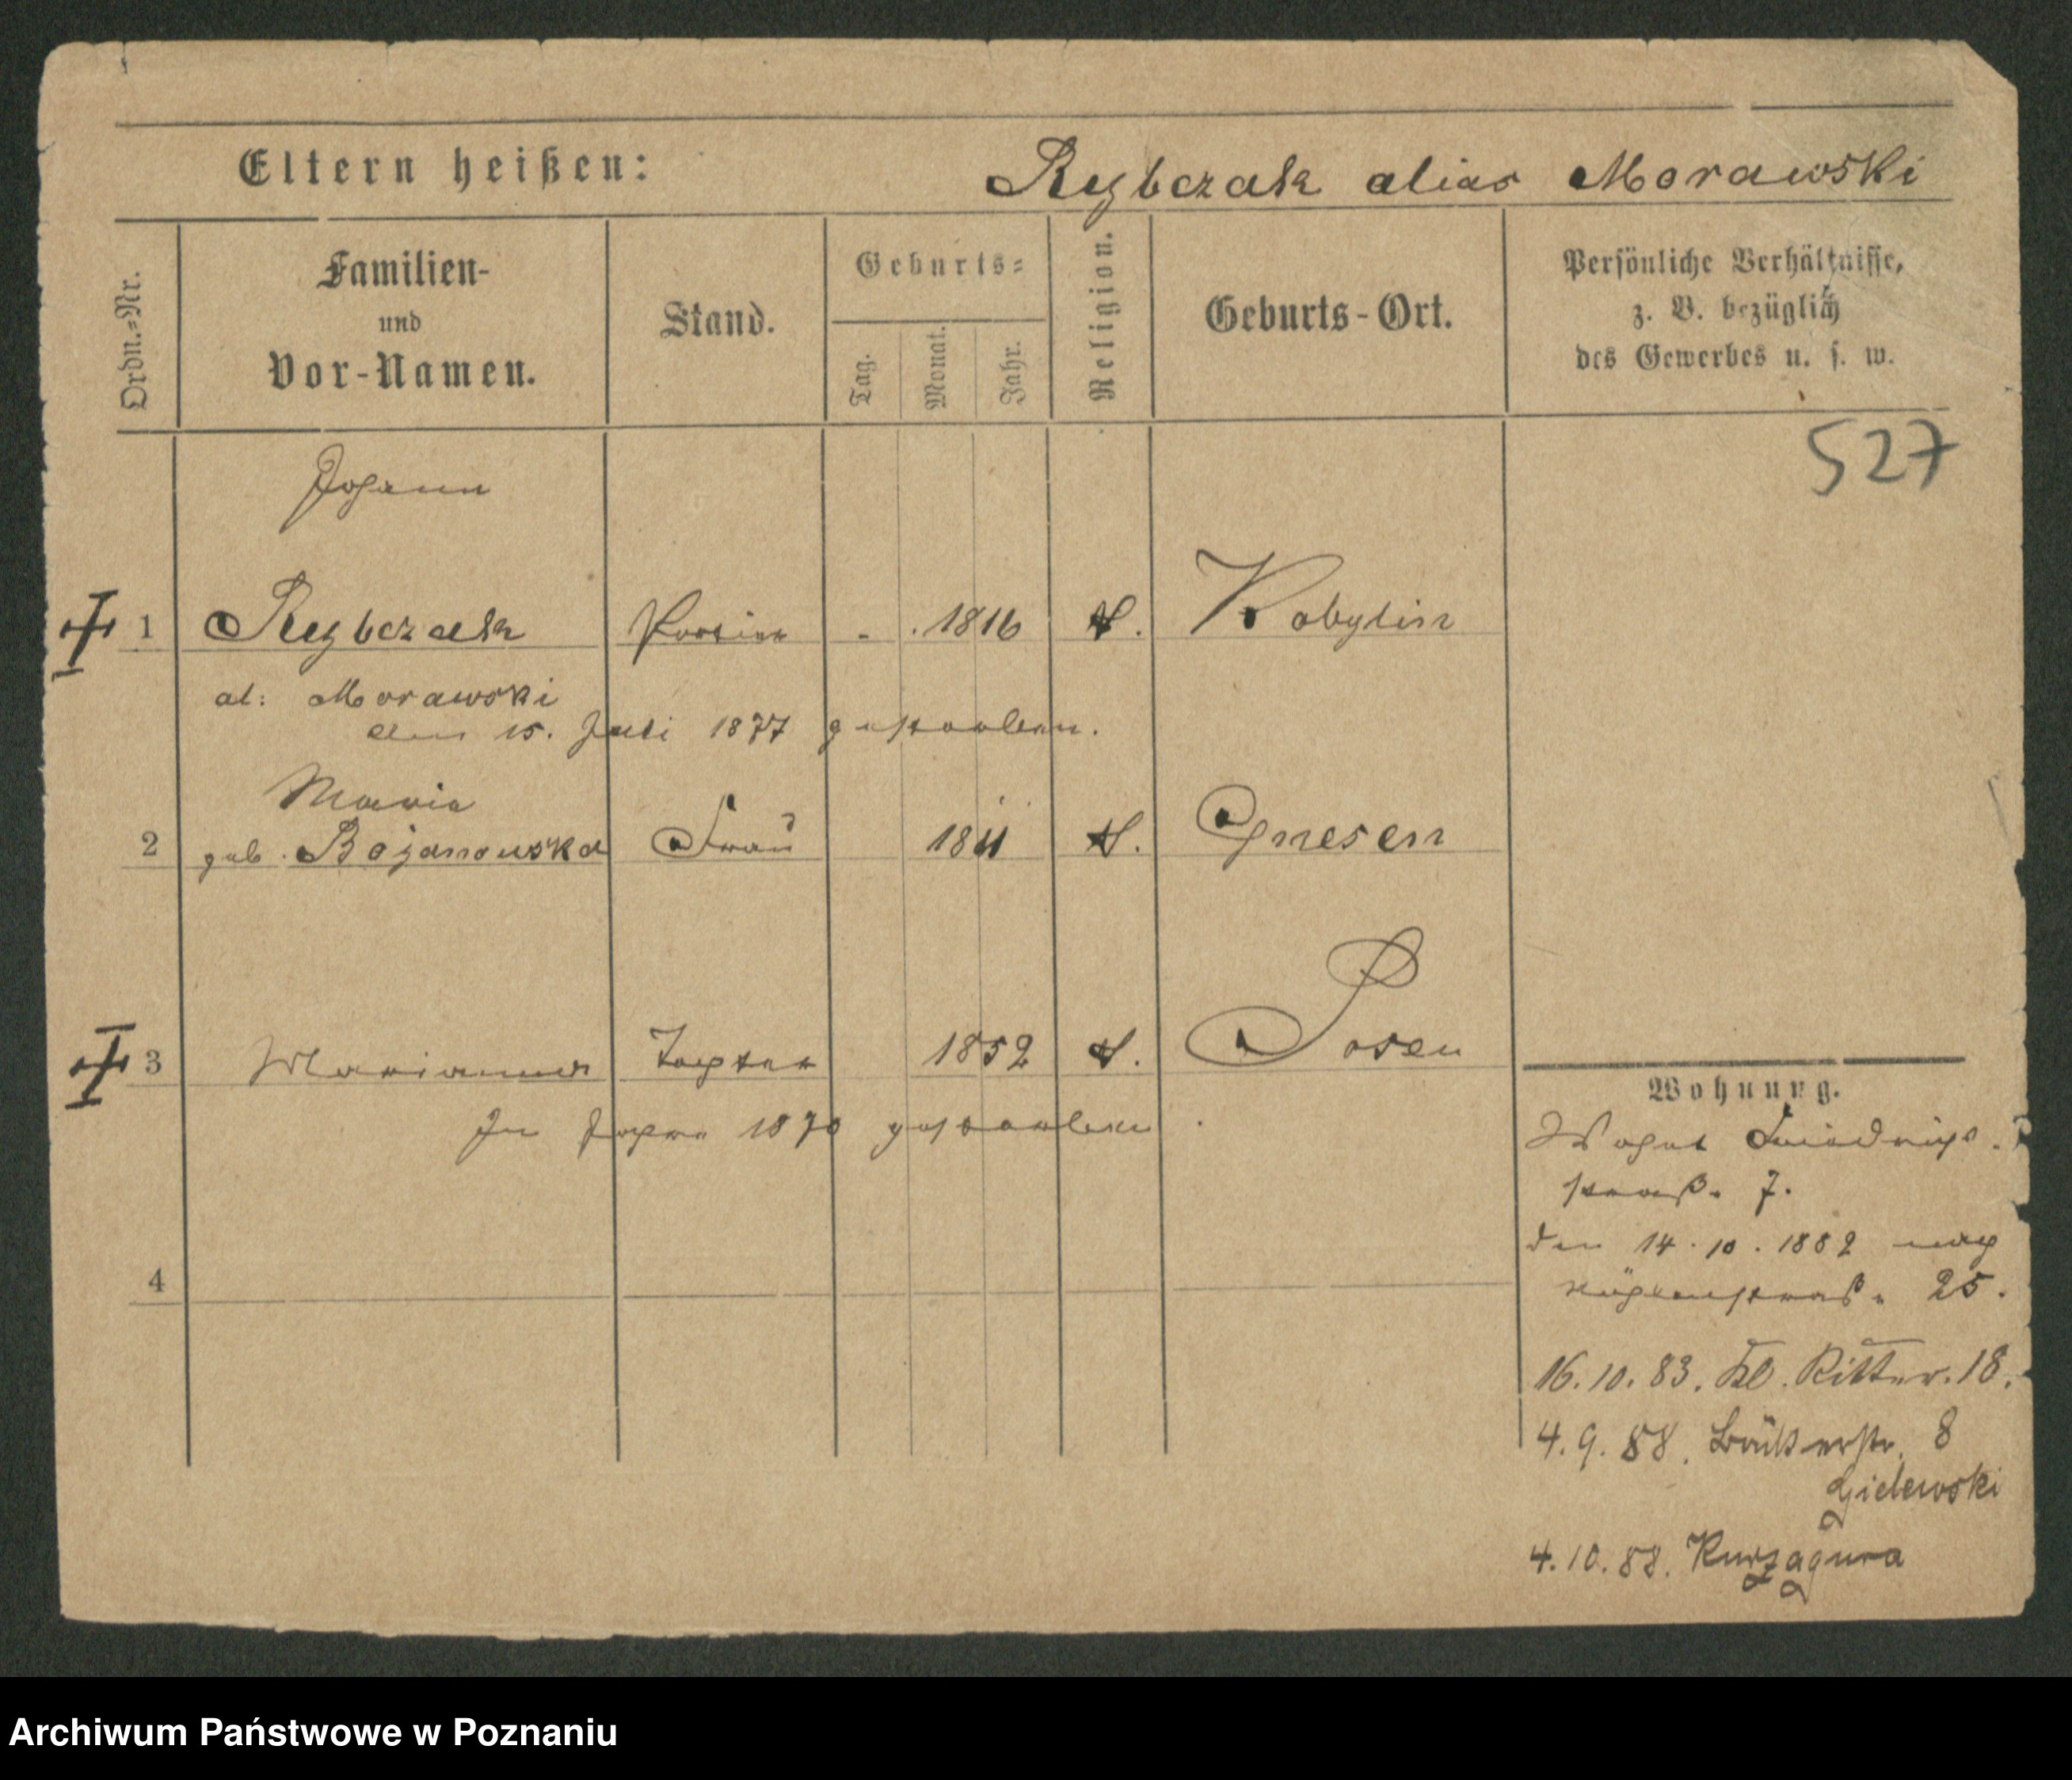 Eltern heißen: Rybczak alias Morawski
Ordn.=Nr.
Familien-
und
Vor-Namen.
Stand.
Geburts=
Tag.
Monat.
Jahr.
Religion.
Geburts-Ort.
Persönliche Verhältnisse,
z. B. bezüglich
des Gewerbes u. s. w.
527
Johann
1 Rybczak Portier - . 1816 Kobylin
al: Morawski
den 15. Juli 1877 gestorben.
Maria
2 geb. Bojanowska Frau 1811 Gnesen
3 Marianna Tochter 1852 Posen
Im Jahre 1870 gestorben.
4
Wohnung.
Wohnt Friedrichs-
straße 7.
den 14.10.1882 nach
25.
16.10.83. Kl. Ritterstr. 18.
4.9.88. 8
4.10.88. Kurzagura
Archiwum Państwowe w Poznaniu